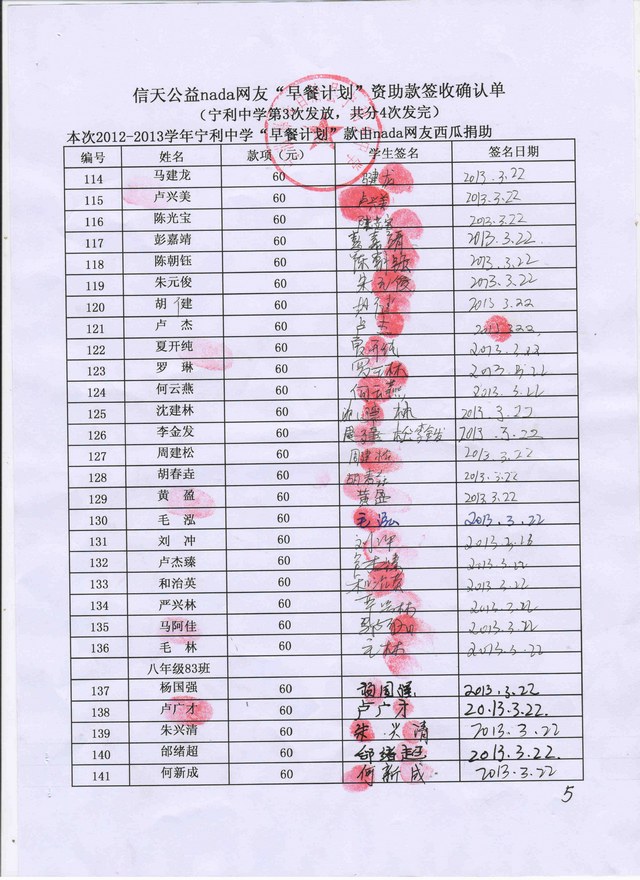 信天公益nada网友“早餐计划”资助款签收确认单
（宁利中学第3次发放，共分4次发完）
本次2012-2013学年宁利中学“早餐计划”款由nada网友西瓜捐助
编号 姓名 款项（元） 学生签名 签名日期
114 马建龙 60 2013.3.22
115 卢兴美 60 卢兴美 2013.3.22
116 陈光宝 60 2013.3.22
117 彭嘉靖 60 彭嘉靖 2013.3.22
118 陈朝钰 60 2013.3.22
119 朱元俊 60 朱元俊 2013.3.22
120 胡健 60 2013.3.22
121 卢杰 60 卢杰 2013.3.22
122 夏开纯 60 夏开纯 2013.3.22
123 罗琳 60 2013.3.22
124 何云燕 60 何云燕 2013.3.22
125 沈建林 60 2013.3.22
126 李金发 60 李金发 2013.3.22
127 周建松 60 周建松 2013.3.22
128 胡春垚 60 2013.3.22
129 黄盈 60 黄盈 2013.3.22
130 毛泓 60 毛泓 2013.3.22
131 刘冲 60 刘冲
132 卢杰臻 60
133 和治英 60
134 严兴林 60 2013.3.22
135 马阿佳 60 2013.3.22
136 毛林 60 毛林
八年级83班
137 杨国强 60 杨国强 2013.3.22
138 卢广才 60 卢广才 2013.3.22.
139 朱兴清 60 朱兴清 2013.3.22
140 邰绪超 60 邰绪超 2013.3.22.
141 何新成 60 何新成 2013.3.22
5